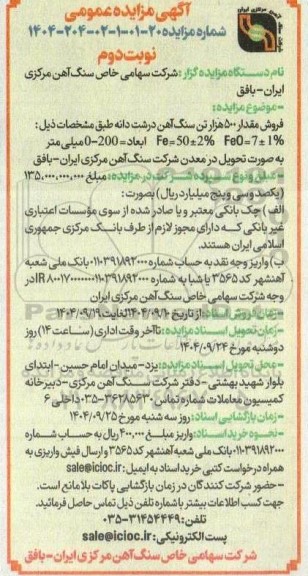 آگهی مزایده عمومی
شماره مزایده ۲۰-۰۱-۰۲-۲۰۴-۱۴۰۴
نوبت دوم
نام دستگاه مزایده گزار: شرکت سهامی خاص سنگ آهن مرکزی
ایران - بافق
- موضوع مزایده:
فروش مقدار ۵۰۰ هزار تن سنگ آهن درشت دانه طبق مشخصات ذیل:
FeO=7±1% Fe=50±2% ابعاد=200-0 میلی متر
به صورت تحویل در معدن شرکت سنگ آهن مرکزی ایران - بافق
- مبلغ و نوع سپرده شرکت در مزایده: مبلغ ۱۳۵,۰۰۰,۰۰۰,۰۰۰
(یکصد و سی و پنج میلیارد ریال) بصورت:
الف) چک بانکی معتبر و یا صادر شده از سوی مؤسسات اعتباری
غیر بانکی که دارای مجوز لازم از طرف بانک مرکزی جمهوری
اسلامی ایران هستند.
ب) واریز وجه نقد به حساب شماره ۰۱۱۰۳۹۱۸۹۲۰۰۰ بانک ملی شعبه
آهنشهر کد ۳۵۶۵ یا شبا به شماره IR در
وجه شرکت سهامی خاص سنگ آهن مرکزی ایران
- زمان فروش اسناد: از تاریخ ۱۴۰۴/۰۹/۱۰ لغایت ۱۴۰۴/۰۹/۱۹
- زمان تحویل اسناد مزایده: تا آخر وقت اداری (ساعت ۱۴) روز
دوشنبه مورخ ۱۴۰۴/۰۹/۲۴
- محل تحویل اسناد مزایده: یزد - میدان امام حسین - ابتدای
بلوار شهید بهشتی - دفتر شرکت سنگ آهن مرکزی - دبیرخانه
کمیسیون معاملات شماره تماس ۳۶۲۸۵۶۳۰-۰۳۵ داخلی ۶
- زمان بازگشایی اسناد: روز سه شنبه مورخ ۱۴۰۴/۰۹/۲۵
- نحوه خرید اسناد: واریز مبلغ ۴۰۰,۰۰۰ ریال به حساب شماره
۰۱۱۰۳۹۱۸۹۲۰۰۰ بانک ملی شعبه آهنشهر کد ۳۵۶۵ و ارسال فیش واریزی به
همراه درخواست کتبی خرید اسناد به ایمیل: sale@icioc.ir
- حضور شرکت کنندگان در زمان بازگشایی پاکات بلامانع است.
جهت کسب اطلاعات بیشتر با شماره تلفن ذیل تماس حاصل فرمائید.
تلفن: ۳۱۴۵۴۴۴۹-۰۳۵
پست الکترونیکی: sale@icioc.ir
شرکت سهامی خاص سنگ آهن مرکزی ایران - بافق